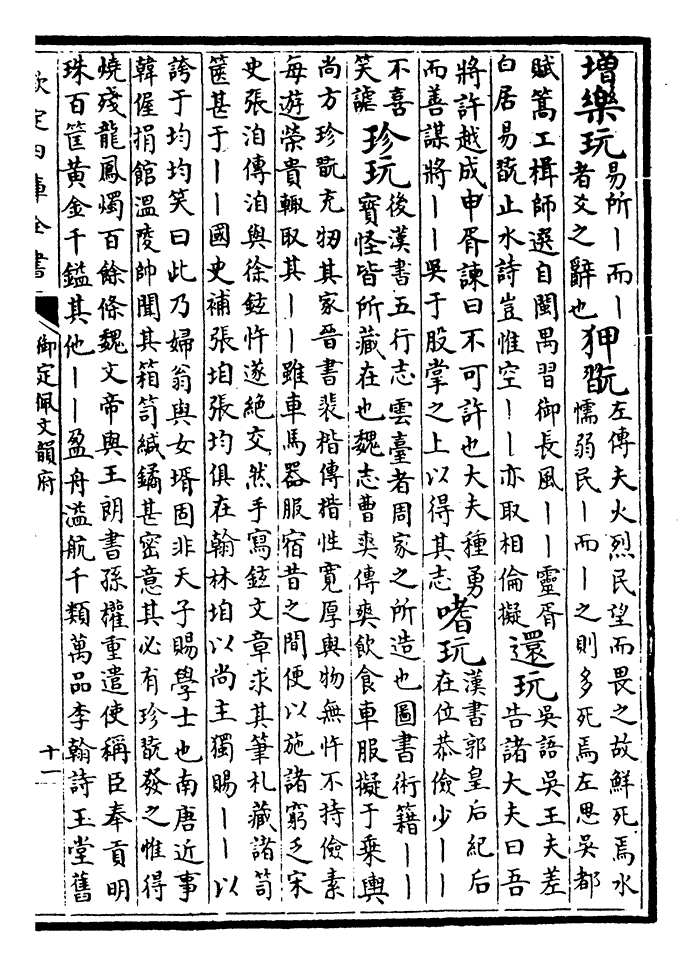 增樂玩易所丨而丨者爻之辭也狎翫左傳夫火烈民望而畏之故鮮死焉水懦弱民丨而丨之則多死焉左思吳都
賦篙工楫師選自閩禺習御長風丨丨靈胥白居易翫止水詩豈惟空丨丨亦取相倫擬還玩吳語吳王夫差告諸大夫曰吾
將許越成申胥諫曰不可許也大夫種勇而善謀將丨丨吳于股掌之上以得其志嗜玩漢書郭皇后紀后在位恭儉少丨丨
不喜笑謔珍玩後漢書五行志雲臺者周家之所造也圖書術籍丨丨寶怪皆所藏在也魏志曹爽傳爽飲食車服擬于乘輿
尚方珍翫充牣其家晉書裴楷傳楷性寬厚與物無忤不持儉素每遊榮貴輙取其丨丨雖車馬器服宿昔之間便以施諸窮乏宋
史張洎傳洎與徐鉉忤遂絕交然手寫鉉文章求其筆札藏諸笥篋甚于丨丨國史補張垍張均俱在翰林垍以尚主獨賜丨丨以
誇于均均笑曰此乃婦翁與女壻固非天子賜學士也南唐近事韓偓捐館溫陵帥聞其箱笥緘鐍甚密意其必有珍翫發之惟得
燒殘龍鳳燭百餘條魏文帝與王朗書孫權重遣使稱臣奉貢明珠百筐黃金千鎰其他丨丨盈舟溢航千類萬品李翰詩玉堂舊
欽定四庫全書
御定佩文韻府
十一